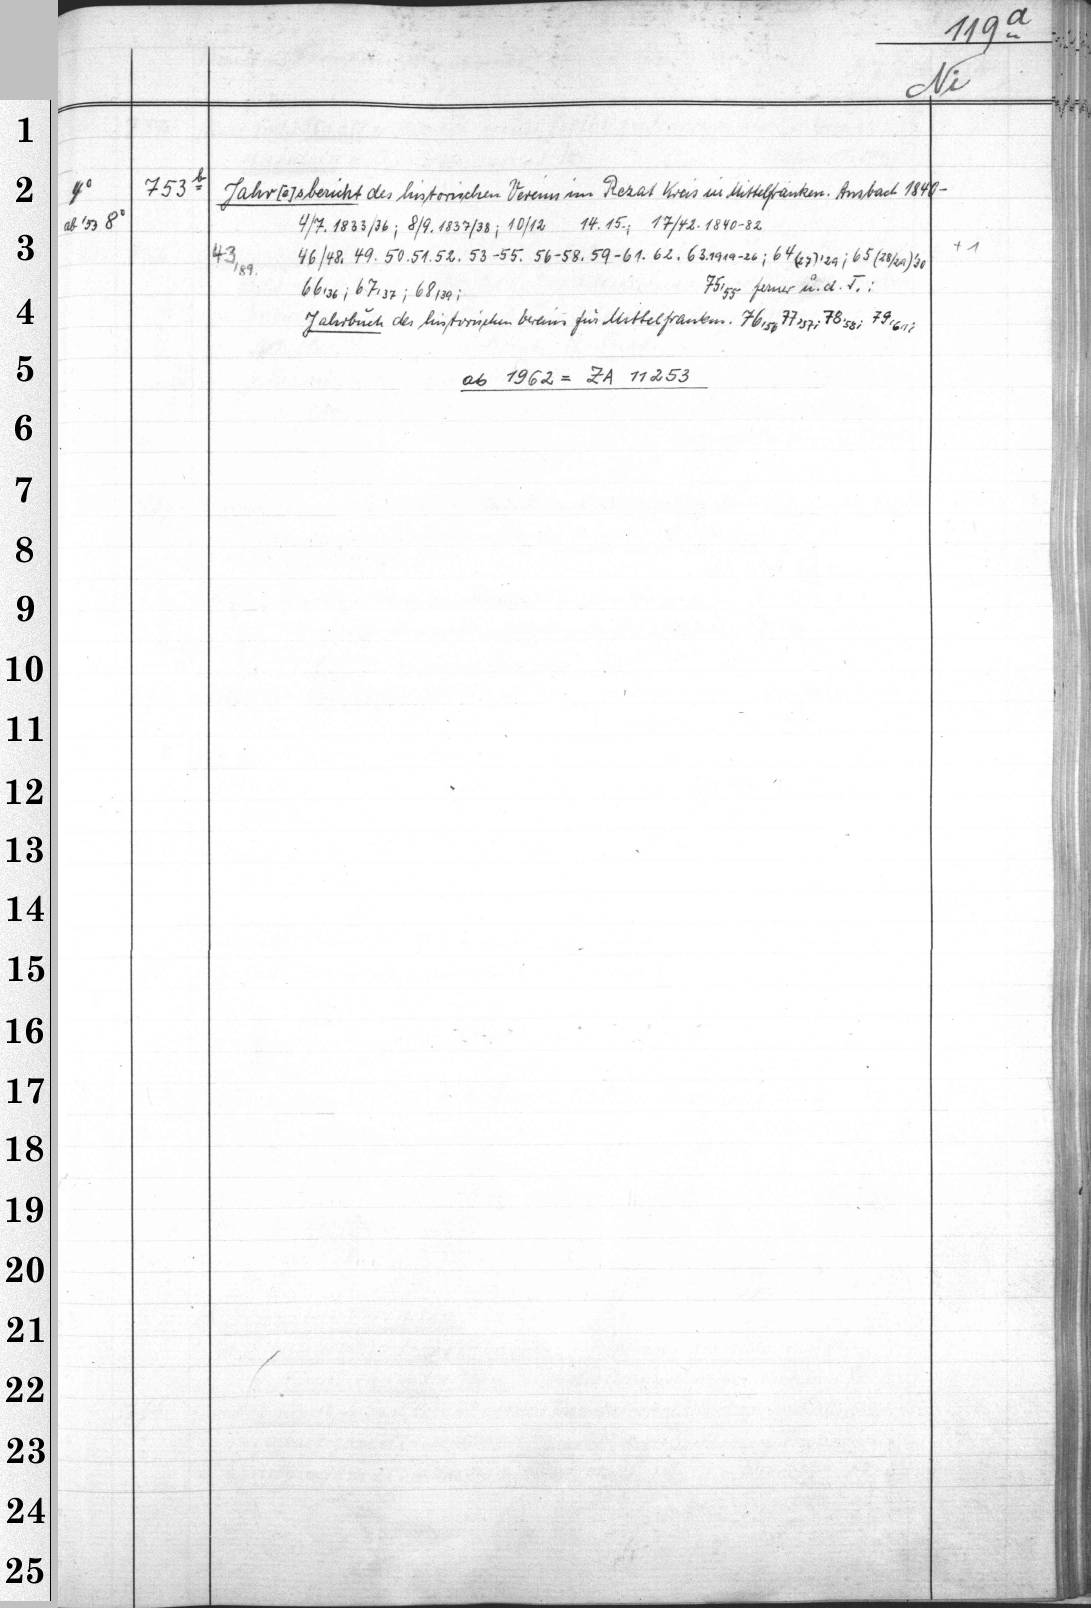 119 a
Ni
1
2 4° 753 b Jahr[e]sbericht des historischen Vereins im Rezat Kreis in Mittelfranken. Ansbach 1840-
ab '53 8° 4/7. 1833/36; 8/9. 1837/38; 10/12 14. 15.; 17/42. 1840-82
3 43,'89. 46/48. 49. 50. 51. 52. 53-55. 56-58. 59-61. 62. 63. 1919-26; 64 (27)'29; 65 (28/29)'30 + 1
66,'36; 67,'37; 68,'39; 75,'55 ferner u. d. T.:
4 Jahrbuch des historischen Vereins für Mittelfranken. 76,'56 77,'57; 78,'58; 79,'61;
5 ab 1962 = ZA 11253
6
7
8
9
10
11
12
13
14
15
16
17
18
19
20
21
22
23
24
25